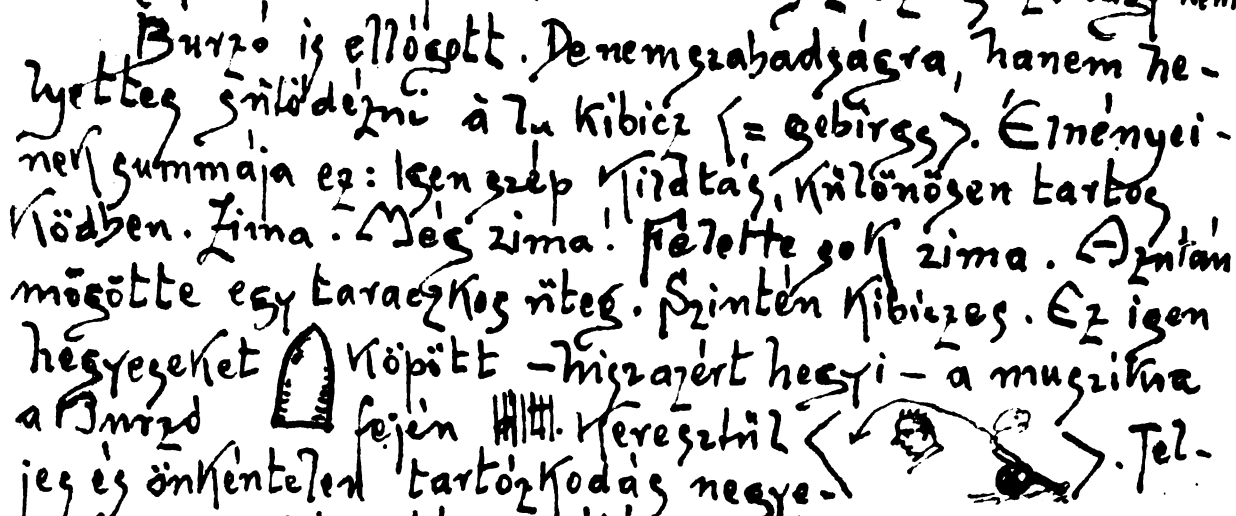 Burzó is ellógott. De nem szabadságra, hanem he-
lyettes sülődézni à la kibicz (= gebirgs). Élményei-
nek summája ez: Igen szép kilátás, különösen tartós
ködben. Zima. Még zima! Felette sok zima. Aztán
mögötte egy taraczkos üteg. Szintén kibiczes. Ez igen
hegyeseket köpött – hisz azért hegyi – a muszikra
a Burzó fején keresztül. Tel-
jes és önkéntelen tartózkodás negye-